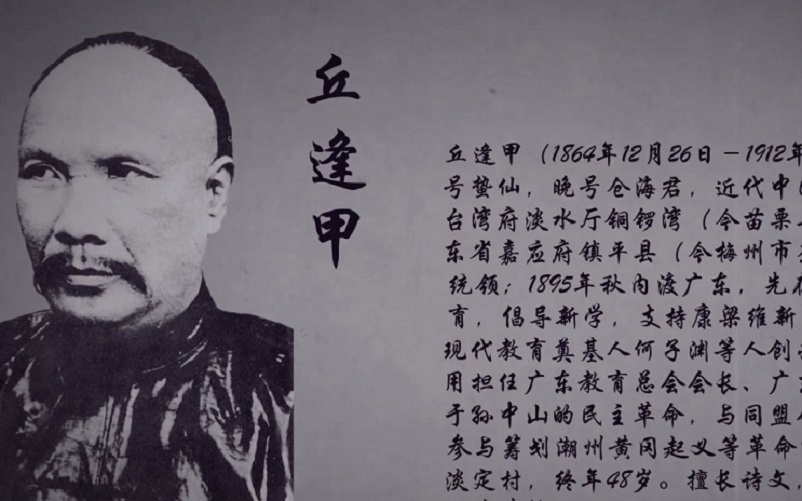 丘逢甲
丘逢甲（1864年12月26日－1912年
号蛰仙，晚号仓海君，近代中
台湾府淡水厅铜锣湾（今苗栗
东省嘉应府镇平县（今梅州市
统领；1895年秋内渡广东，先
育，倡导新学，支持康梁维新
现代教育奠基人何子渊等人创
用担任广东教育总会会长、广
于孙中山的民主革命，与同盟
参与筹划潮州黄冈起义等革命
淡定村，终年48岁。擅长诗文，